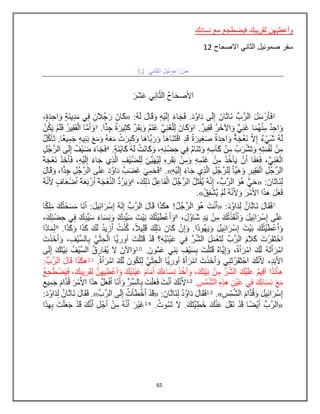 وأعطيهن لقريبك فيضطجع مع نسائك
سفر صموئيل الثاني الاصحاح 12
صموئيل الثاني 12
الأصحَاحُ الثَّانِي عَشَرَ
1فَأَرْسَلَ الرَّبُّ نَاثَانَ إِلَى دَاوُدَ. فَجَاءَ إِلَيْهِ وَقَالَ لَهُ: «كَانَ رَجُلاَنِ فِي مَدِينَةٍ وَاحِدَةٍ،
وَاحِدٌ مِنْهُمَا غَنِيٌّ وَالآخَرُ فَقِيرٌ. 2وَكَانَ لِلْغَنِيِّ غَنَمٌ وَبَقَرٌ كَثِيرَةٌ جِدًّا. 3وَأَمَّا الْفَقِيرُ فَلَمْ يَكُنْ
لَهُ شَيْءٌ إِلاَّ نَعْجَةٌ وَاحِدَةٌ صَغِيرَةٌ قَدِ اقْتَنَاهَا وَرَبَّاهَا وَكَبِرَتْ مَعَهُ وَمَعَ بَنِيهِ جَمِيعًا. تَأْكُلُ
مِنْ لُقْمَتِهِ وَتَشْرَبُ مِنْ كَأْسِهِ وَتَنَامُ فِي حِضْنِهِ، وَكَانَتْ لَهُ كَابْنَةٍ. 4فَجَاءَ ضَيْفٌ إِلَى الرَّجُلِ
الْغَنِيِّ، فَعَفَا أَنْ يَأْخُذَ مِنْ غَنَمِهِ وَمِنْ بَقَرِهِ لِيُهَيِّئَ لِلضَّيْفِ الَّذِي جَاءَ إِلَيْهِ، فَأَخَذَ نَعْجَةَ
الرَّجُلِ الْفَقِيرِ وَهَيَّأَ لِلرَّجُلِ الَّذِي جَاءَ إِلَيْهِ». 5فَحَمِيَ غَضَبُ دَاوُدَ عَلَى الرَّجُلِ جِدًّا، وَقَالَ
لِنَاثَانَ: «حَيٌّ هُوَ الرَّبُّ، إِنَّهُ يُقْتَلُ الرَّجُلُ الْفَاعِلُ ذلِكَ، 6وَيَرُدُّ النَّعْجَةَ أَرْبَعَةَ أَضْعَافٍ لأَنَّهُ
فَعَلَ هذَا الأَمْرَ وَلأَنَّهُ لَمْ يُشْفِقْ».
7فَقَالَ نَاثَانُ لِدَاوُدَ: «أَنْتَ هُوَ الرَّجُلُ! هكَذَا قَالَ الرَّبُّ إِلهُ إِسْرَائِيلَ: أَنَا مَسَحْتُكَ مَلِكًا
عَلَى إِسْرَائِيلَ وَأَنْقَذْتُكَ مِنْ يَدِ شَاوُلَ، 8وَأَعْطَيْتُكَ بَيْتَ سَيِّدِكَ وَنِسَاءَ سَيِّدِكَ فِي حِضْنِكَ،
وَأَعْطَيْتُكَ بَيْتَ إِسْرَائِيلَ وَيَهُوذَا. وَإِنْ كَانَ ذلِكَ قَلِيلاً، كُنْتُ أَزِيدُ لَكَ كَذَا وَكَذَا. 9لِمَاذَا
احْتَقَرْتَ كَلاَمَ الرَّبِّ لِتَعْمَلَ الشَّرَّ فِي عَيْنَيْهِ؟ قَدْ قَتَلْتَ أُورِيَّا الْحِثِّيَّ بِالسَّيْفِ، وَأَخَذْتَ
امْرَأَتَهُ لَكَ امْرَأَةً، وَإِيَّاهُ قَتَلْتَ بِسَيْفِ بَنِي عَمُّونَ. 10وَالآنَ لاَ يُفَارِقُ السَّيْفُ بَيْتَكَ إِلَى
الأَبَدِ، لأَنَّكَ احْتَقَرْتَنِي وَأَخَذْتَ امْرَأَةَ أُورِيَّا الْحِثِّيِّ لِتَكُونَ لَكَ امْرَأَةً. 11هكَذَا قَالَ الرَّبُّ:
هأَنَذَا أُقِيمُ عَلَيْكَ الشَّرَّ مِنْ بَيْتِكَ، وَآخُذُ نِسَاءَكَ أَمَامَ عَيْنَيْكَ وَأُعْطِيهِنَّ لِقَرِيبِكَ، فَيَضْطَجعُ
مَعَ نِسَائِكَ فِي عَيْنِ هذِهِ الشَّمْسِ. 12لأَنَّكَ أَنْتَ فَعَلْتَ بِالسِّرِّ وَأَنَا أَفْعَلُ هذَا الأَمْرَ قُدَّامَ جَمِيعِ
إِسْرَائِيلَ وَقُدَّامَ الشَّمْسِ». 13فَقَالَ دَاوُدُ لِنَاثَانَ: «قَدْ أَخْطَأْتُ إِلَى الرَّبِّ». فَقَالَ نَاثَانُ لِدَاوُدَ:
«الرَّبُّ أَيْضًا قَدْ نَقَلَ عَنْكَ خَطِيَّتَكَ. لاَ تَمُوتُ. 14غَيْرَ أَنَّهُ مِنْ أَجْلِ أَنَّكَ قَدْ جَعَلْتَ بِهذَا
65